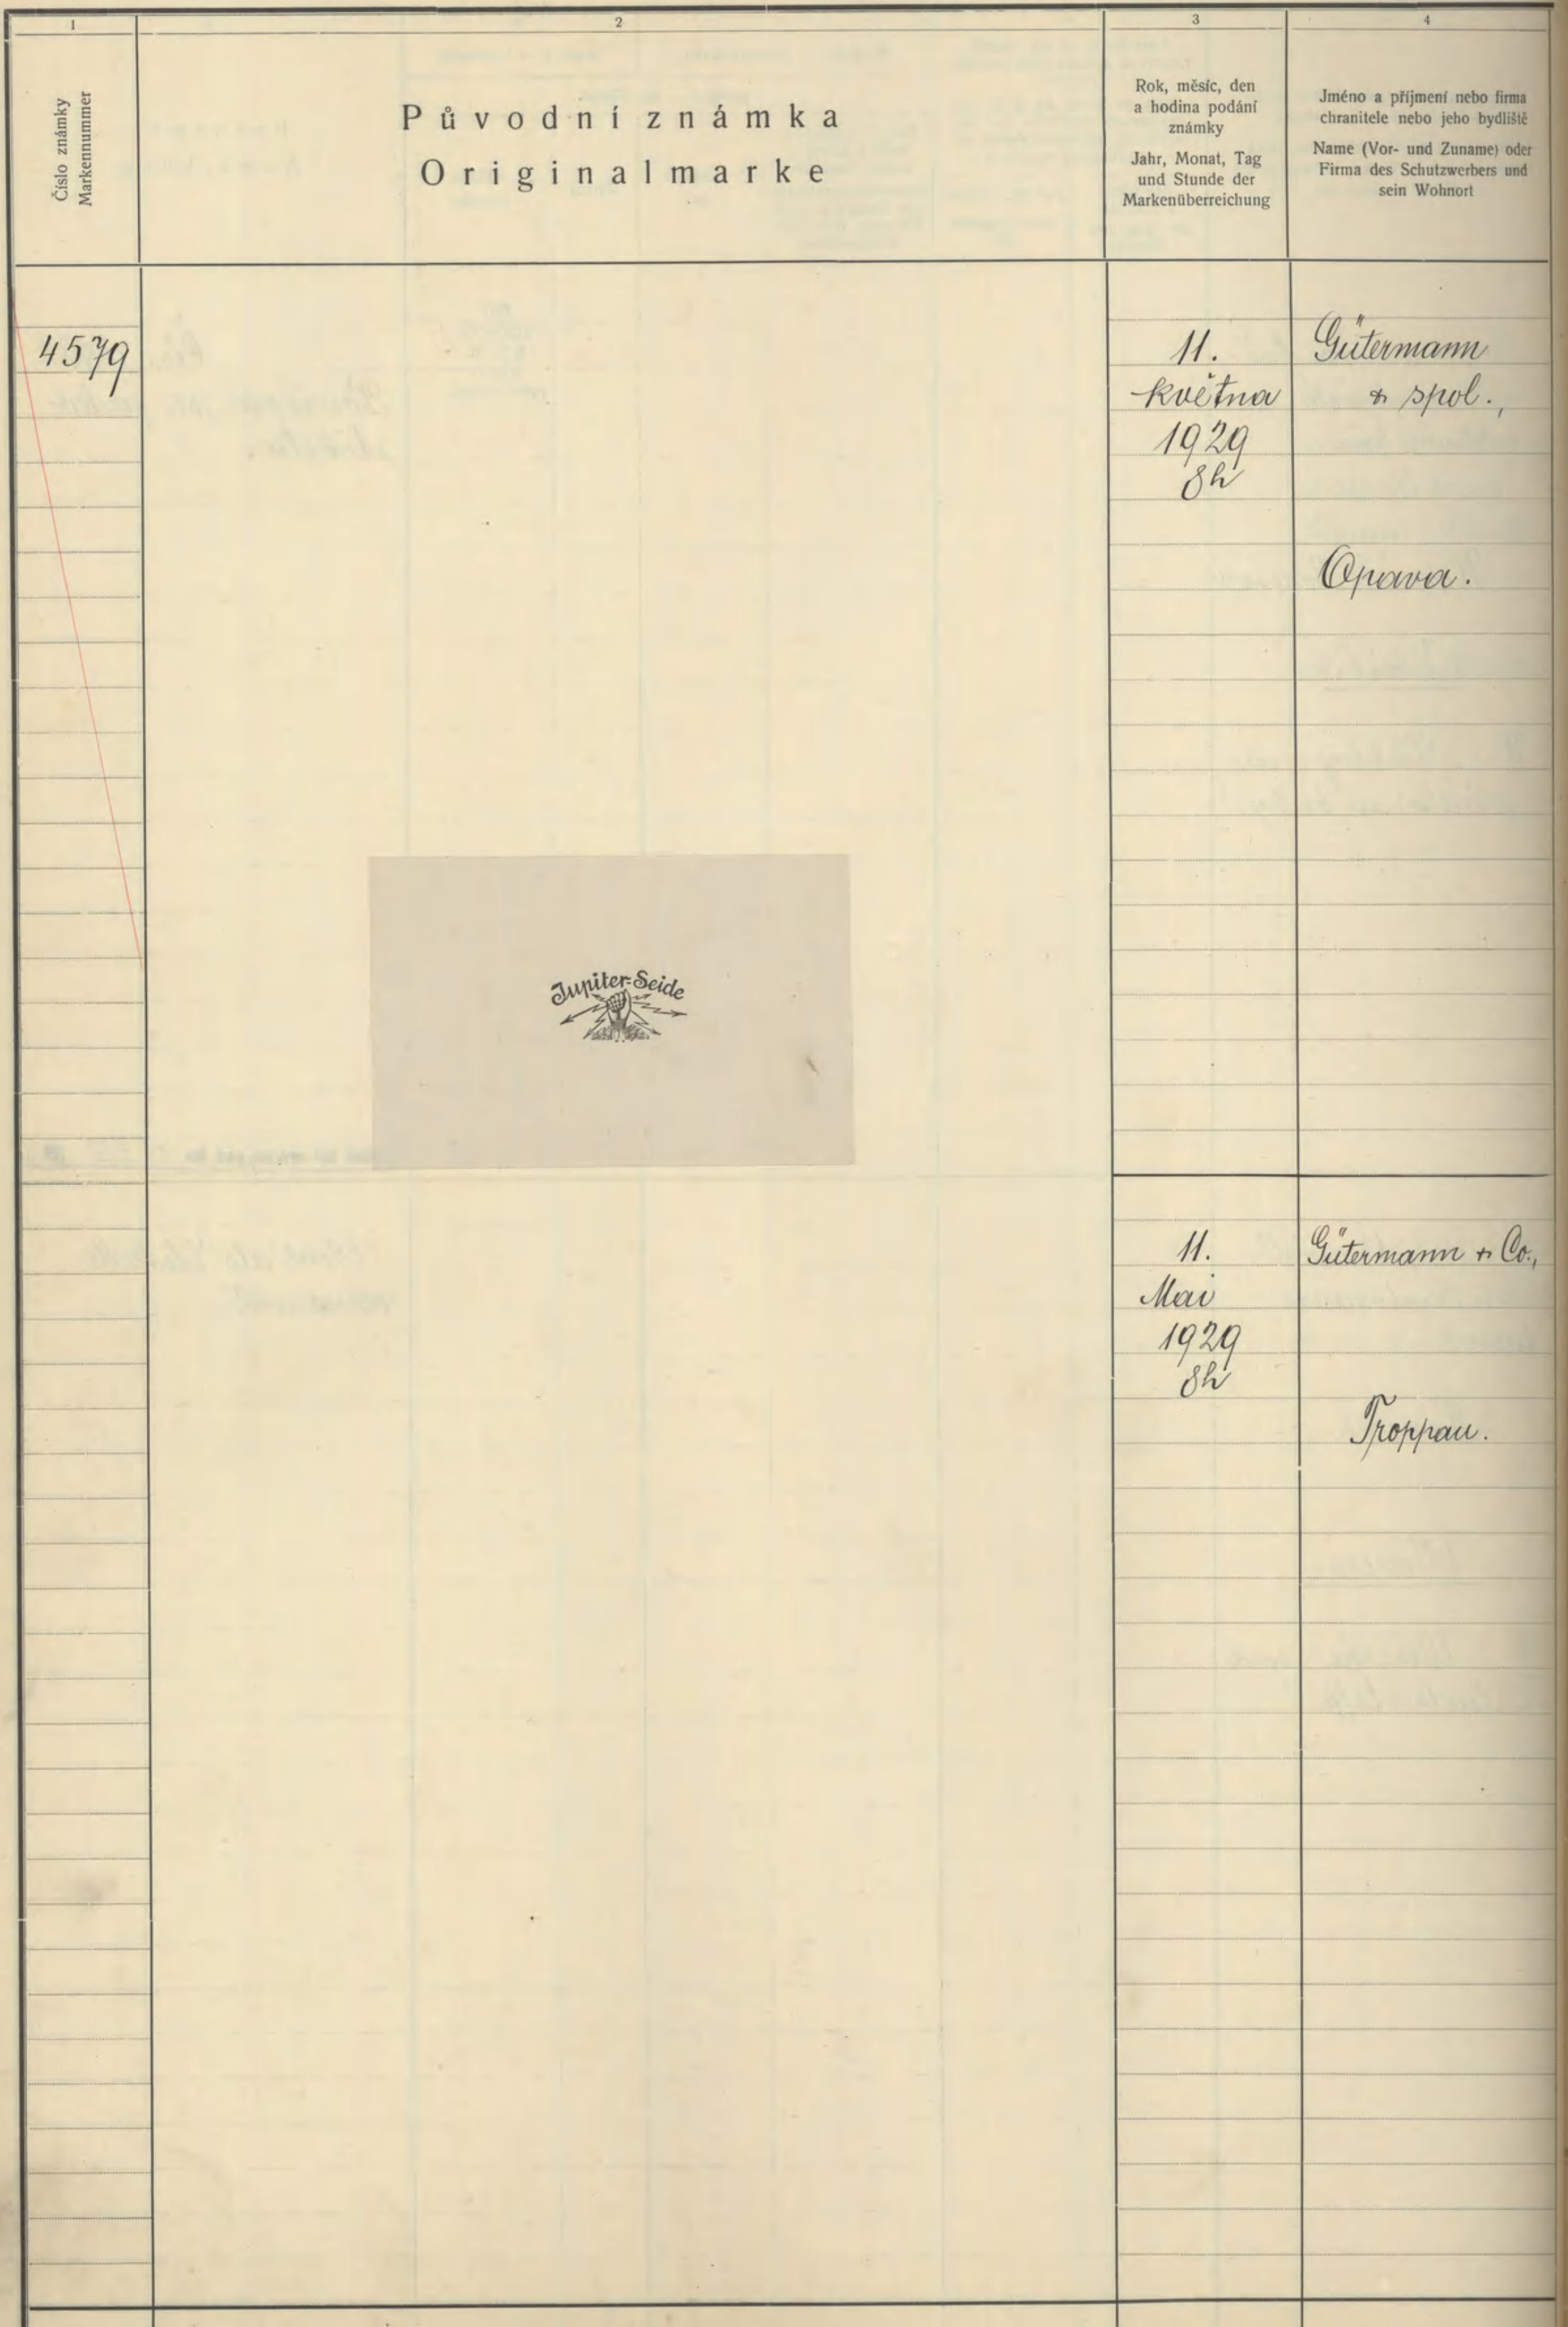 1
2
3
4
Číslo známky
Markennummer
Původní známka
Originalmarke
Rok, měsíc, den
a hodina podání
známky
Jahr, Monat, Tag
und Stunde der
Markenüberreichung
Jméno a příjmení nebo firma
chranitele nebo jeho bydliště
Name (Vor- und Zuname) oder
Firma des Schutzwerbers und
sein Wohnort
4579
11.
května
1929
8h
Gütermann
& spol.,
Opava.
Jupiter-Seide
11.
Mai
1929
8h
Gütermann & Co.,
Troppau.